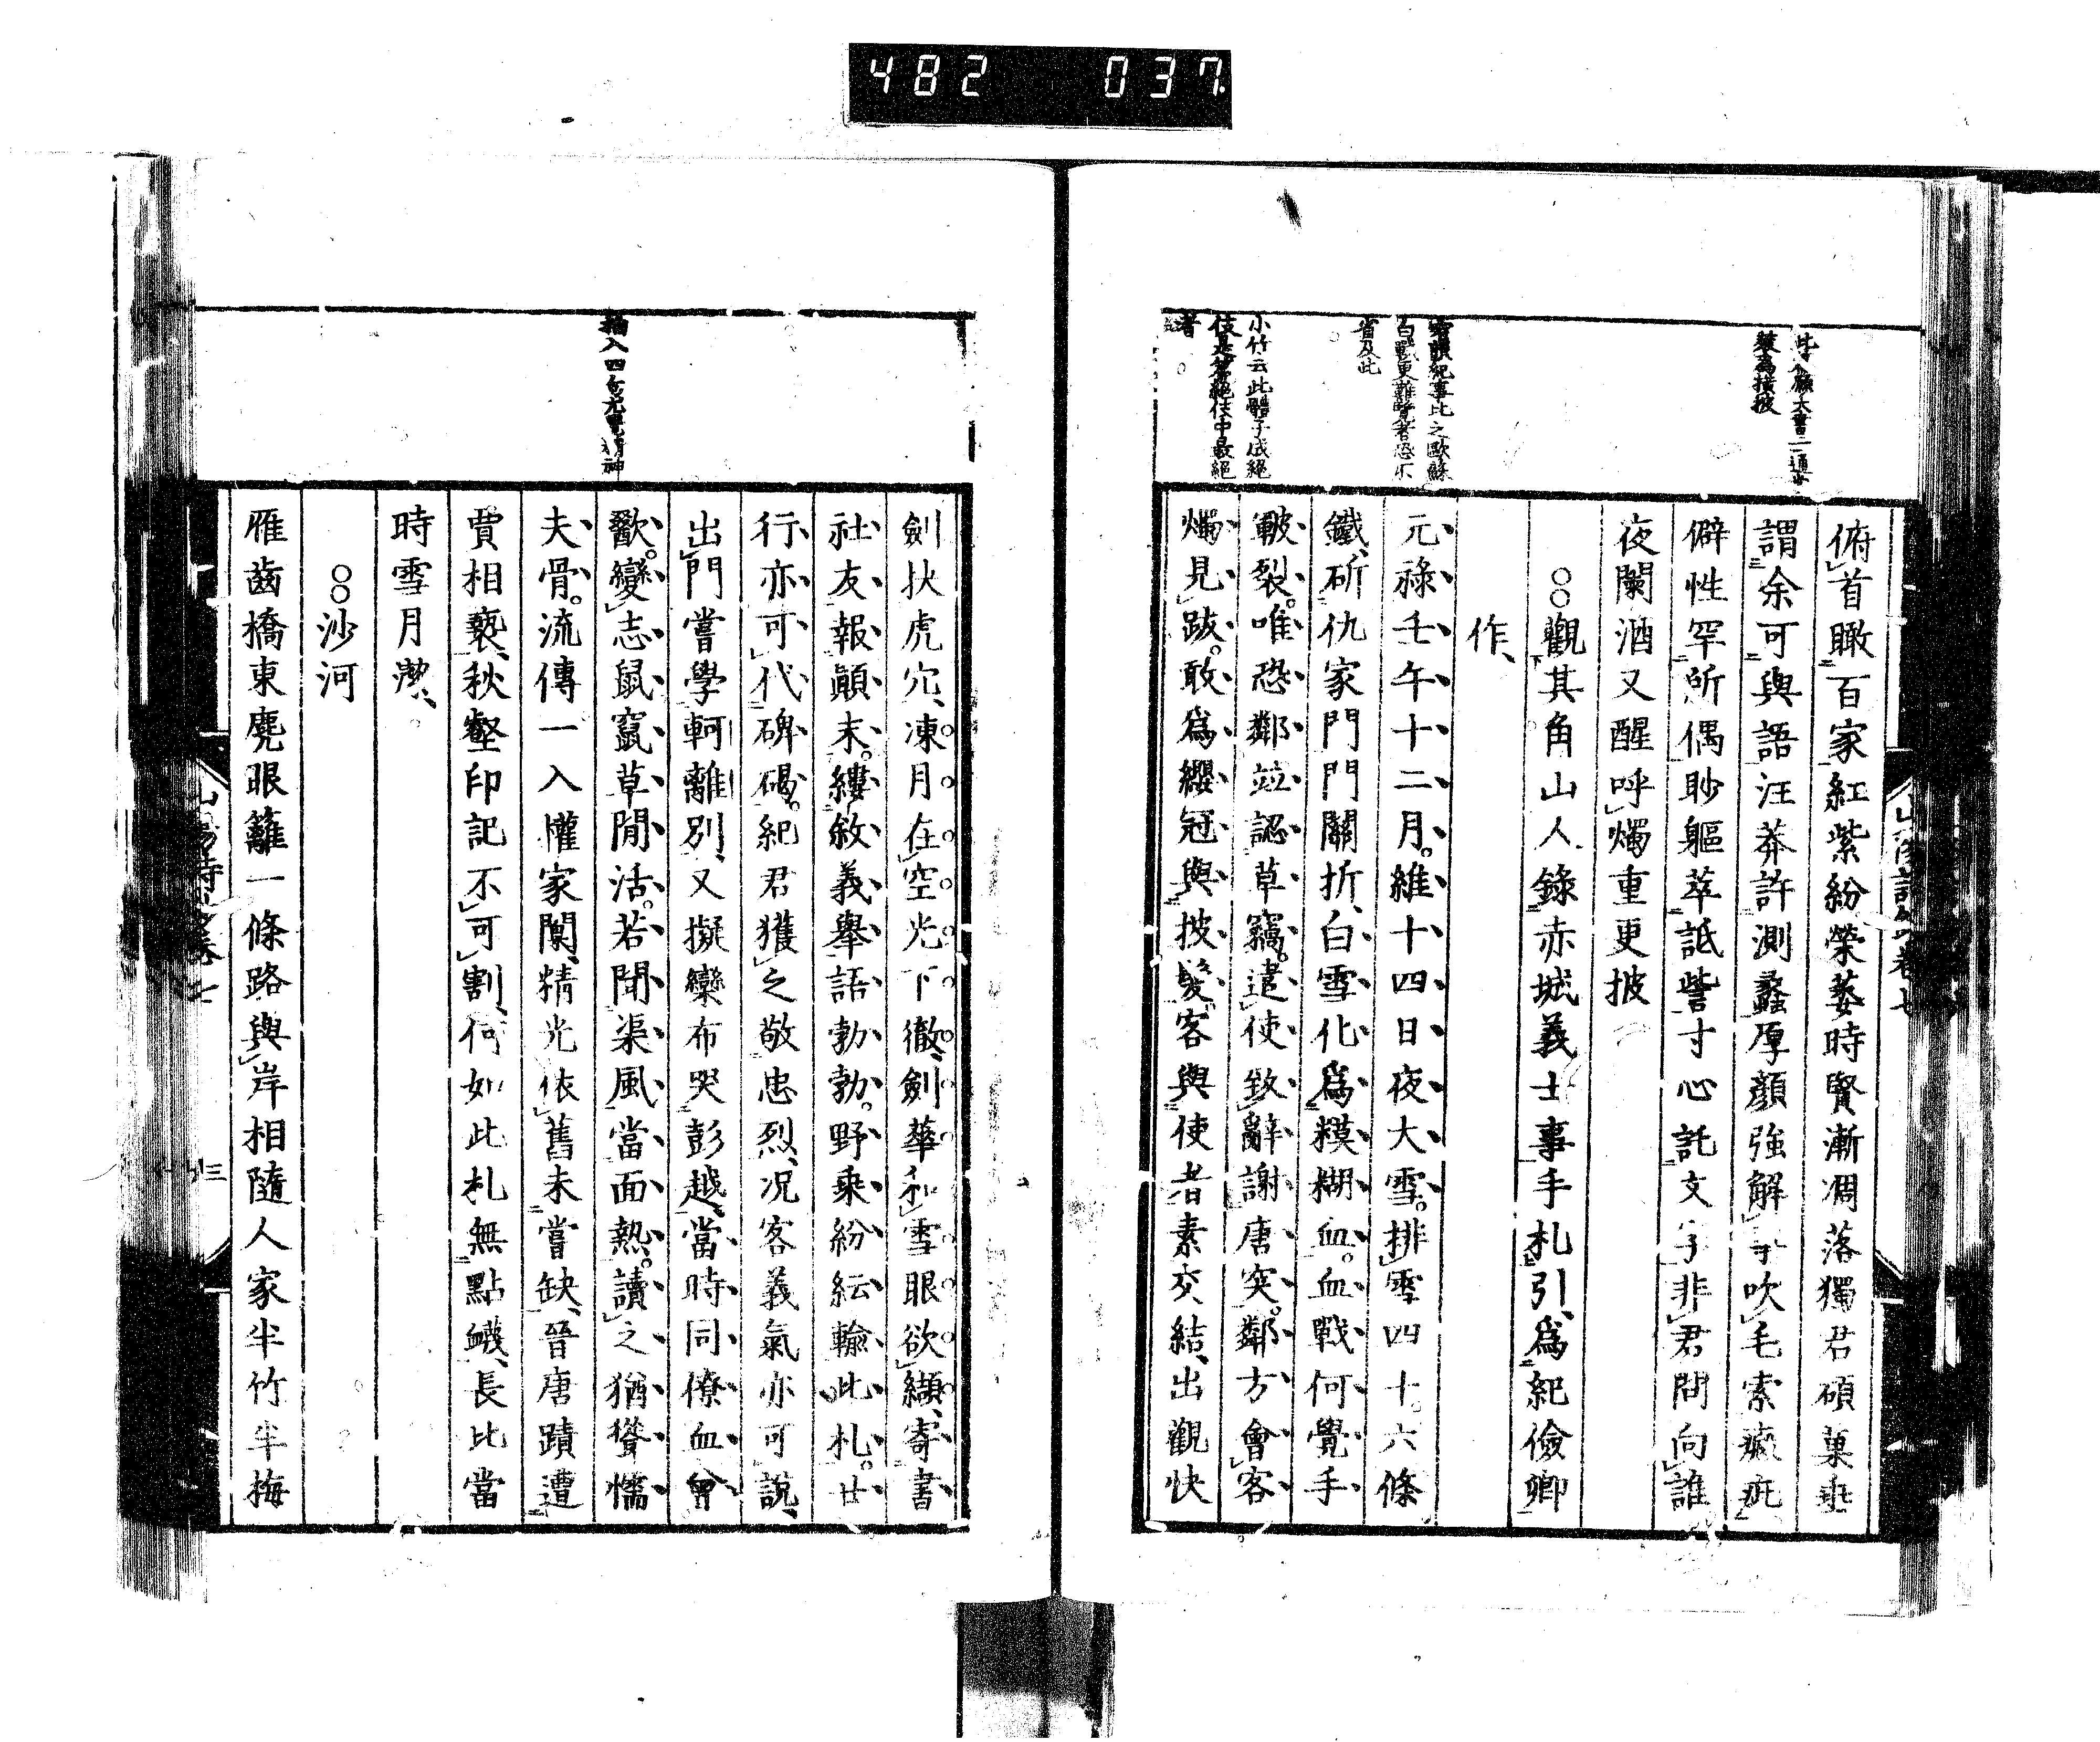 482 037
俯首瞰百家紅紫紛榮萎時賢漸凋落獨君碩菓垂
謂余可與語汪莽許測蠡厚顏強解吹毛索瘢疵
僻性罕所偶眇軀萃詆訾寸心託文字非君問向誰
夜闌酒又醒呼燭重更披
○○觀其角山人錄赤城義士事手札引爲紀儉卿
作
元祿壬午十二月維十四日夜大雪排雪四十六條
鐵斫仇家門門關折白雪化爲糢糊血血戰何覺手
皸裂唯恐鄰竝認草竊遣使致辭謝唐突鄰方會客
燭見跋敢爲纓冠與披髮客與使者素交結出觀快
小竹云此體子成絕
伎是篇絕伎中最絕
者
省及此
劍抉虎穴凍月在空光下徹劍華利雪眼欲纈寄書
社友報顚末縷敘義舉語勃勃野乘紛紜輸此札廿
行亦可代碑碣紀君獲之敬忠烈況客義氣亦可說
出門嘗學軻離別又擬欒布哭彭越當時同僚血曾
歠變志鼠竄草間活若聞渠風當面熱讀之猶聳懦
夫骨流傳一入懽家闃精光依舊未嘗缺晉唐蹟遭
賈相褻秋壑印記不可割何如此札無點衊長比當
時雪月㓗
○○沙河
雁齒橋東麂眼籬一條路與岸相隨人家半竹半梅